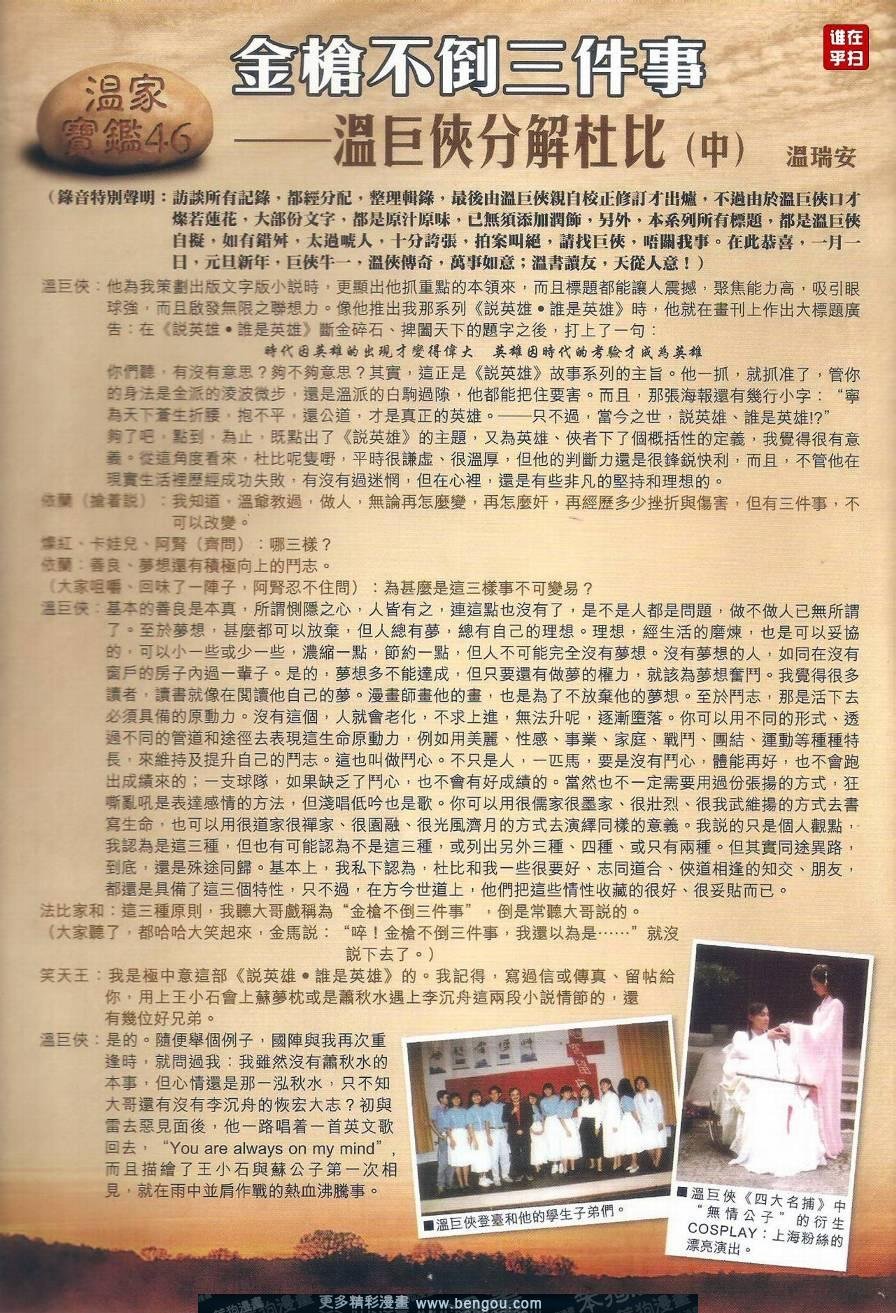 誰在
乎扫
金槍不倒三件事
溫家
寶鑑46
——溫巨俠分解杜比(中)
溫瑞安
(錄音特別聲明：訪談所有記錄，都經分配，整理輯錄，最後由溫巨俠親自校正修訂才出爐，不過由於溫巨俠口才
燦若蓮花，大部份文字，都是原汁原味，已無須添加潤飾，另外，本系列所有標題，都是溫巨俠
自擬，如有錯舛，太過唬人，十分誇張，拍案叫絕，請找巨俠，唔關我事。在此恭喜，一月一
日，元旦新年，巨俠牛一，溫俠傳奇，萬事如意；溫書讀友，天從人意！)
溫巨俠：他為我策劃出版文字版小說時，更顯出他抓重點的本領來，而且標題都能讓人震撼，聚焦能力高，吸引眼
球強，而且啟發無限之聯想力。像他推出我那系列《說英雄•誰是英雄》時，他就在畫刊上作出大標題廣
告：在《說英雄•誰是英雄》斷金碎石、捭闔天下的題字之後，打上了一句：
時代因英雄的出現才變得偉大　英雄因時代的考驗才成為英雄
你們聽，有沒有意思？夠不夠意思？其實，這正是《說英雄》故事系列的主旨。他一抓，就抓准了，管你
的身法是金派的凌波微步，還是溫派的白駒過隙，他都能把住要害。而且，那張海報還有幾行小字：“寧
為天下蒼生折腰，抱不平，還公道，才是真正的英雄。——只不過，當今之世，說英雄、誰是英雄!?”
夠了吧，點到，為止，既點出了《說英雄》的主題，又為英雄、俠者下了個概括性的定義，我覺得很有意
義。從這角度看來，杜比呢隻嘢，平時很謙虛、很溫厚，但他的判斷力還是很鋒銳快利，而且，不管他在
現實生活裡歷經成功失敗，有沒有過迷惘，但在心裡，還是有些非凡的堅持和理想的。
依蘭（搶着說）：我知道，溫爺教過，做人，無論再怎麼變，再怎麼奸，再經歷多少挫折與傷害，但有三件事，不
可以改變。
燦紅、卡娃兒、阿腎（齊問）：哪三樣？
依蘭：善良、夢想還有積極向上的鬥志。
（大家咀嚼、回味了一陣子，阿腎忍不住問）：為甚麼是這三樣事不可變易？
溫巨俠：基本的善良是本真，所謂惻隱之心，人皆有之，連這點也沒有了，是不是人都是問題，做不做人已無所謂
了。至於夢想，甚麼都可以放棄，但人總有夢，總有自己的理想。理想，經生活的磨煉，也是可以妥協
的，可以小一些或少一些，濃縮一點，節約一點，但人不可能完全沒有夢想。沒有夢想的人，如同在沒有
窗戶的房子內過一輩子。是的，夢想多不能達成，但只要還有做夢的權力，就該為夢想奮鬥。我覺得很多
讀者，讀書就像在閱讀他自己的夢。漫畫師畫他的畫，也是為了不放棄他的夢想。至於鬥志，那是活下去
必須具備的原動力。沒有這個，人就會老化，不求上進，無法升呢，逐漸墮落。你可以用不同的形式、透
過不同的管道和途徑去表現這生命原動力，例如用美麗、性感、事業、家庭、戰鬥、團結、運動等種種特
長，來維持及提升自己的鬥志。這也叫做鬥心。不只是人，一匹馬，要是沒有鬥心，體能再好，也不會跑
出成績來的；一支球隊，如果缺乏了鬥心，也不會有好成績的。當然也不一定需要用過份張揚的方式，狂
嘶亂吼是表達感情的方法，但淺唱低吟也是歌。你可以用很儒家很墨家、很壯烈、很我武維揚的方式去書
寫生命，也可以用很道家很禪家、很圓融、很光風濟月的方式去演繹同樣的意義。我說的只是個人觀點，
我認為是這三種，但也有可能認為不是這三種，或列出另外三種、四種、或只有兩種。但其實同途異路，
到底，還是殊途同歸。基本上，我私下認為，杜比和我一些很要好、志同道合、俠道相逢的知交、朋友，
都還是具備了這三個特性，只不過，在方今世道上，他們把這些情性收藏的很好、很妥貼而已。
法比家和：這三種原則，我聽大哥戲稱為“金槍不倒三件事”，倒是常聽大哥說的。
（大家聽了，都哈哈大笑起來，金馬說：“啐！金槍不倒三件事，我還以為是……”就沒
說下去了。）
笑天王：我是極中意這部《說英雄•誰是英雄》的。我記得，寫過信或傳真、留帖給
你，用上王小石會上蘇夢枕或是蕭秋水遇上李沉舟這兩段小說情節的，還
有幾位好兄弟。
溫巨俠：是的。隨便舉個例子，國陣與我再次重
逢時，就問過我：我雖然沒有蕭秋水的
本事，但心情還是那一泓秋水，只不知
大哥還有沒有李沉舟的恢宏大志？初與
雷去惡見面後，他一路唱着一首英文歌
回去，“You are always on my mind”，
而且描繪了王小石與蘇公子第一次相
見，就在雨中並肩作戰的熱血沸騰事。
■溫巨俠登臺和他的學生子弟們。
■溫巨俠《四大名捕》中
“無情公子”的衍生
COSPLAY：上海粉絲的
漂亮演出。
更多精彩漫畫 www.bengou.com